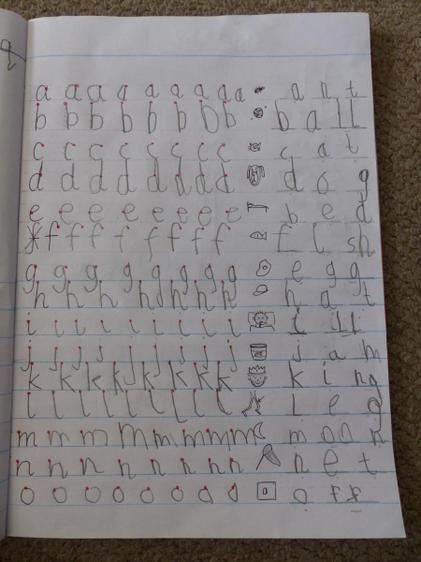 a a a a a a a a a ant
b b b b b b b b ball
c c c c c c c c cat
d d d d d d d d dog
e e e e e e e e bed
f f f f f f f f fish
g g g g g g g g egg
h h h h h h h h hat
i i i i i i i i i ill
j j j j j j j j jam
k k k k k k k k king
l l l l l l l l leg
m m m m m m m m m moon
n n n n n n n n net
o o o o o o o o off